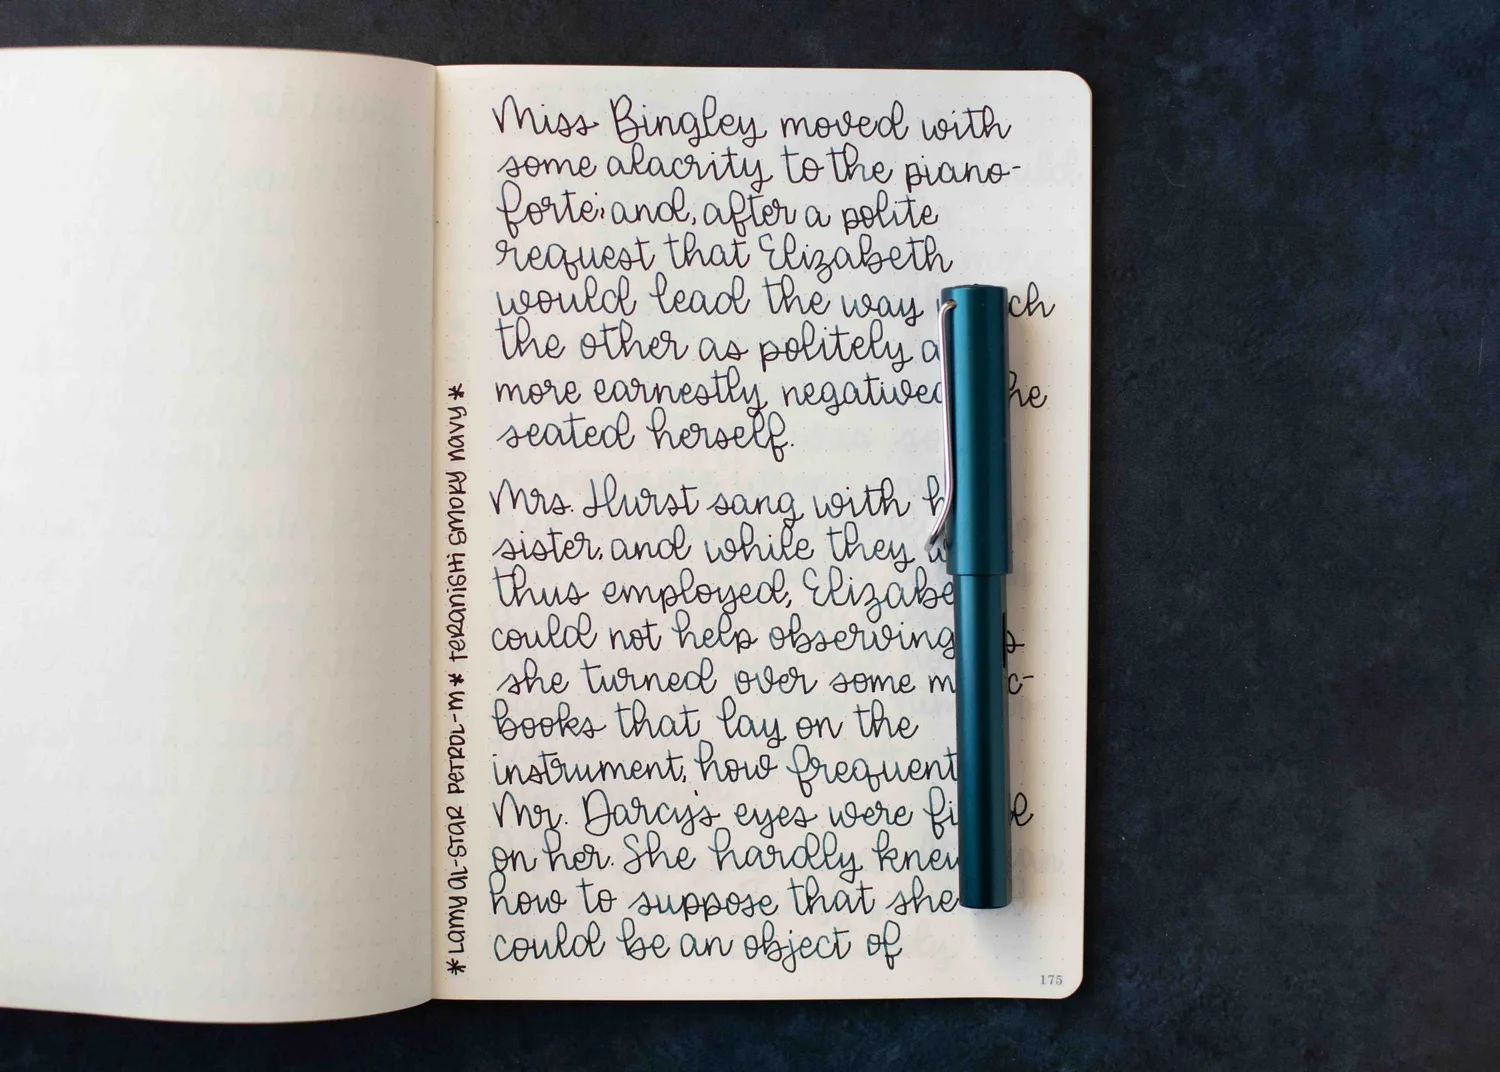 Miss Bingley moved with
some alacrity to the piano-
forte; and, after a polite
request that Elizabeth
would lead the way
the other as politely
more earnestly negatived
seated herself.
Mrs. Hurst sang with
sister, and while they
thus employed,
could not help observing
she turned over some
books that lay on the
instrument, how
Mr. Darcy's eyes were
on her. She hardly
how to suppose that she
could be an object of
*Lamy al-star petrol-m * Teranishi smoky navy *
175